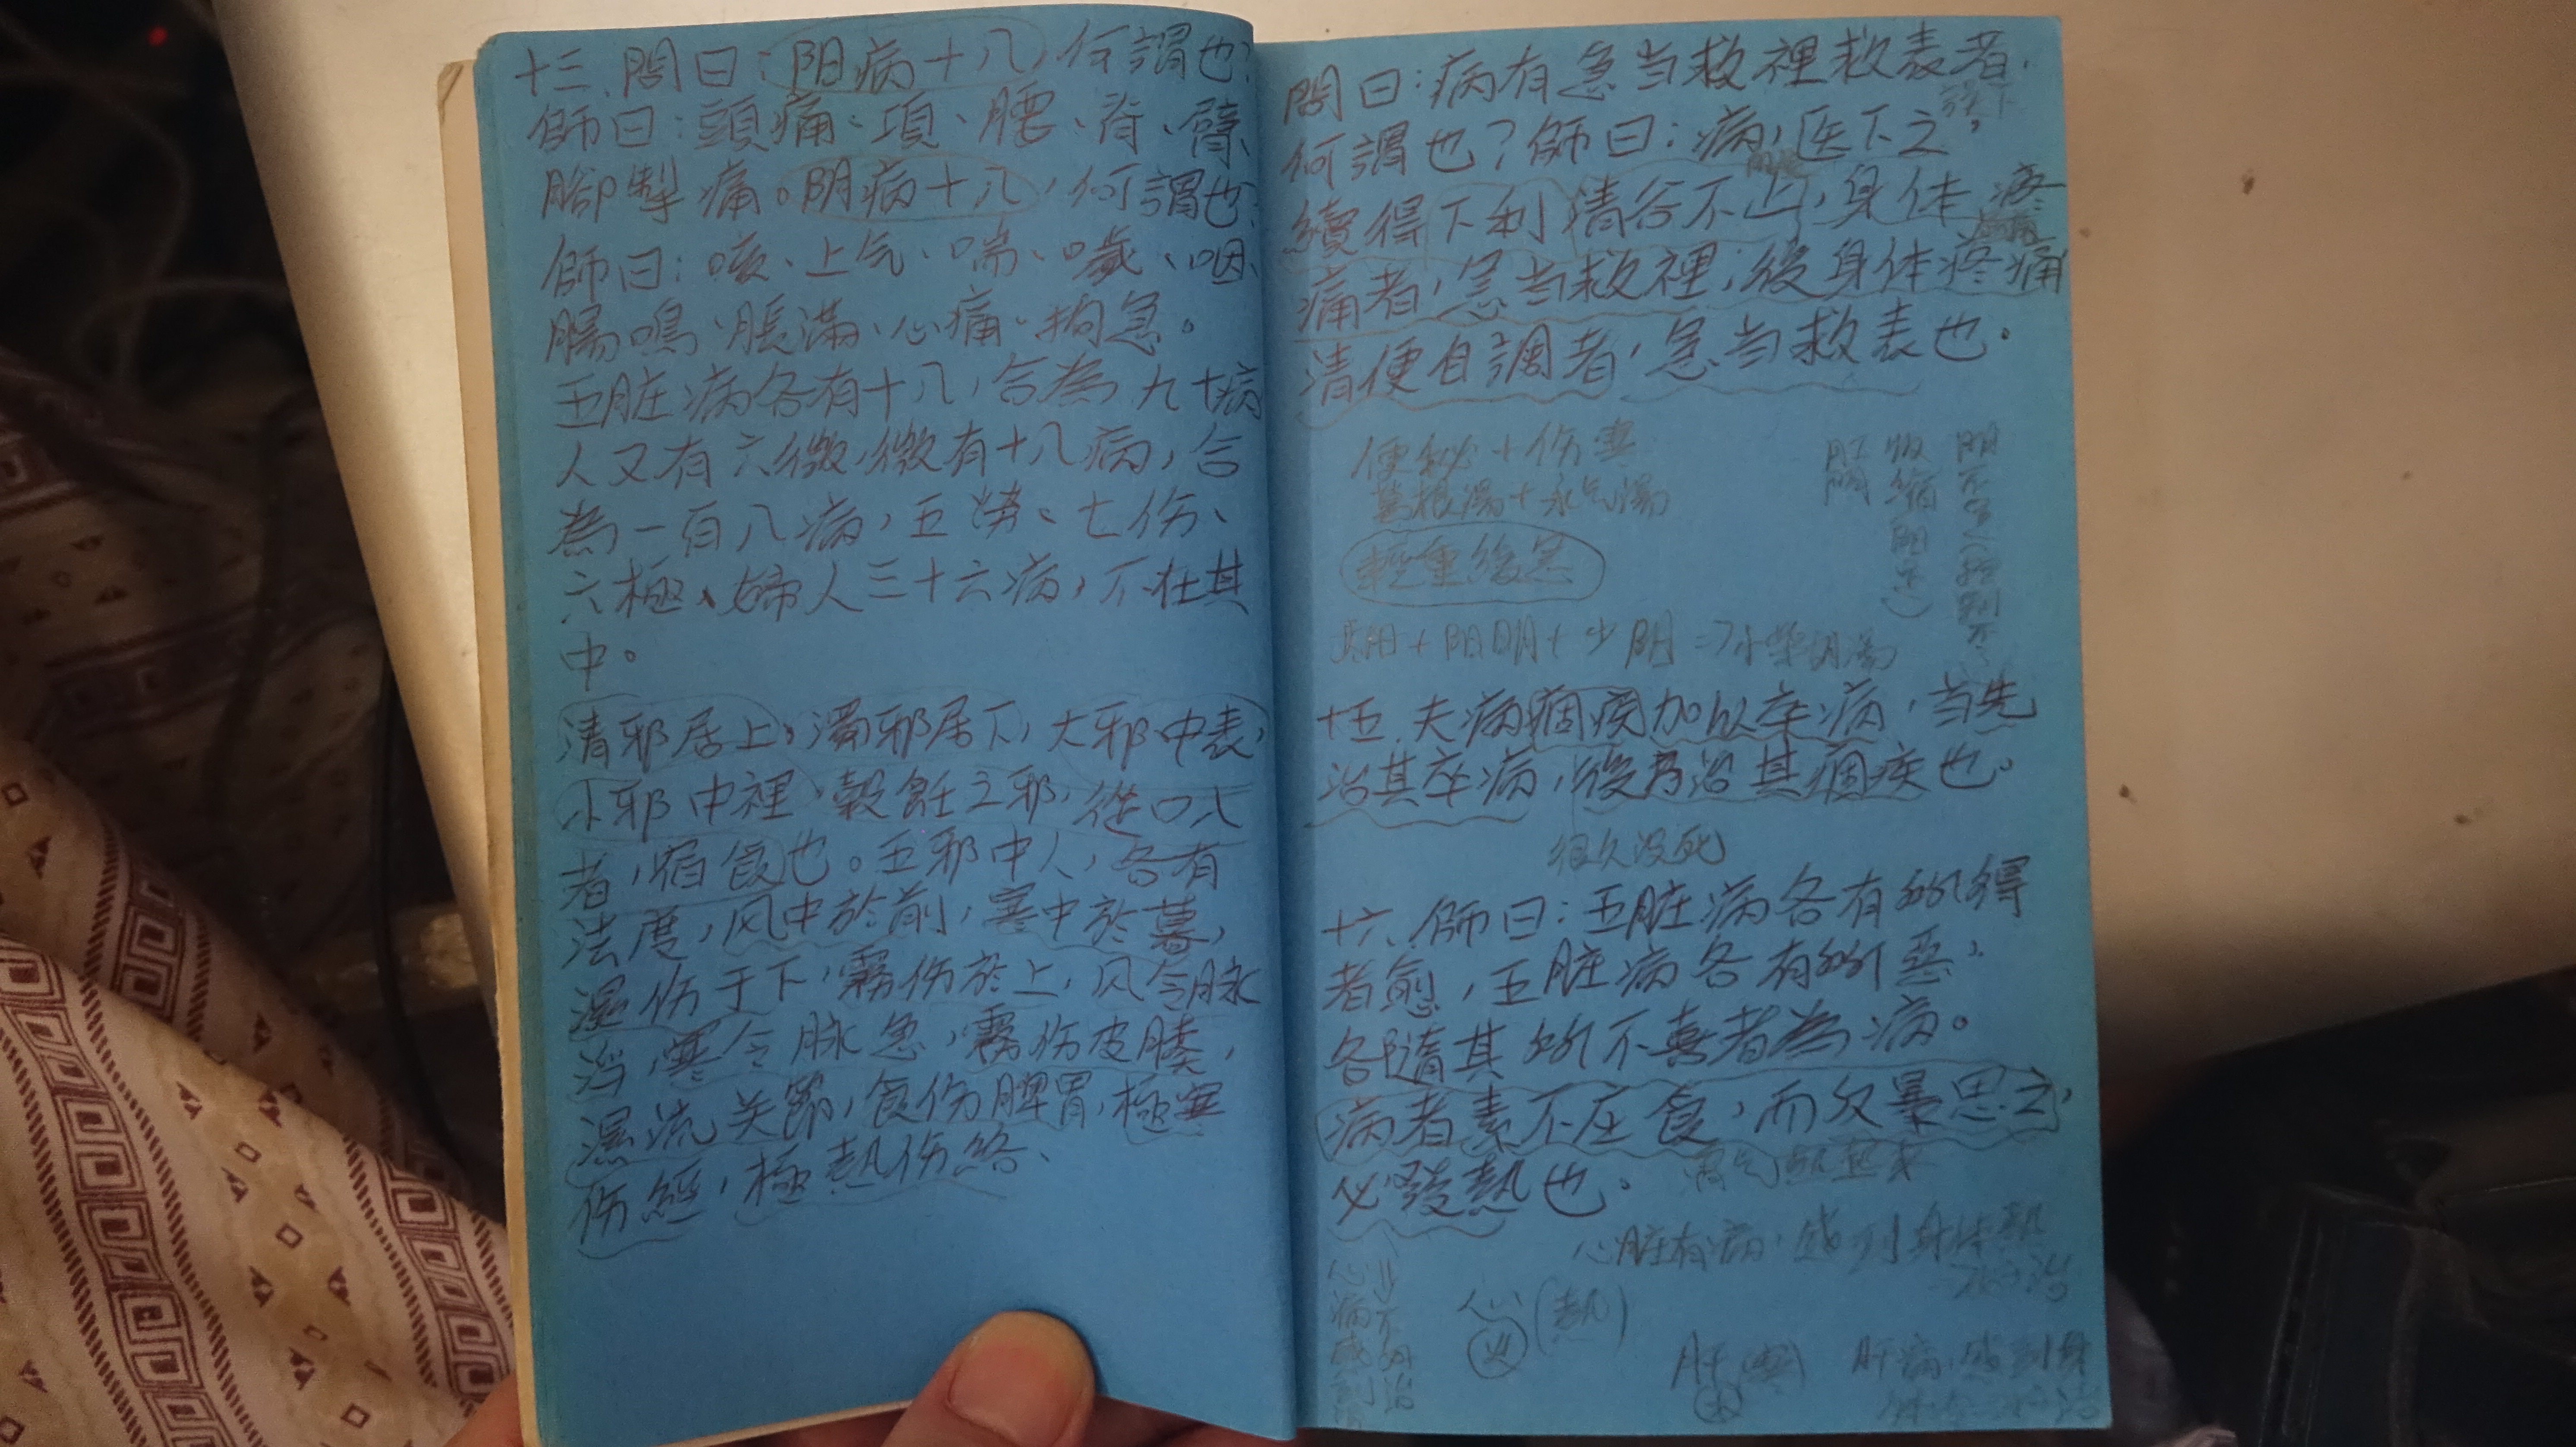 十三、問曰：阳病十八，何謂也？
師曰：頭痛、項、腰、脊、臂、
腳掣痛。阴病十八，何謂也？
師曰：咳、上气、喘、噦、咽、
腸鳴、脹滿、心痛、拘急。
五脏病各有十八，合為九十病
人又有六微，微有十八病，合
為一百八病，五勞、七伤、
六極、婦人三十六病，不在其
中。
清邪居上，濁邪居下，大邪中表，
小邪中裡，穀飪之邪，從口入
者，宿食也。五邪中人，各有
法度，风中於前，寒中於暮，
濕伤于下，霧伤於上，风令脉
浮，寒令脉急，霧伤皮腠，
濕流关節，食伤脾胃，極寒
伤經，極熱伤络、
問曰：病有急当救裡救表者，
何謂也？師曰：病，医下之，
續得下利清谷不止，身体疼
痛者，急当救裡；後身体疼痛
清便自調者，急当救表也。
便秘+伤寒
葛根湯+承气湯
輕重緩急
十五、夫病痼疾加以卒病，当先
治其卒病，後乃治其痼疾也。
很久没死
十六、師曰：五脏病各有所得
者愈，五脏病各有所惡，
各隨其所不喜者為病。
病者素不应食，而反暴思之，
必發熱也。
心脏有病，感到身体熱
心(熱)
火
肝
肝病，感到身